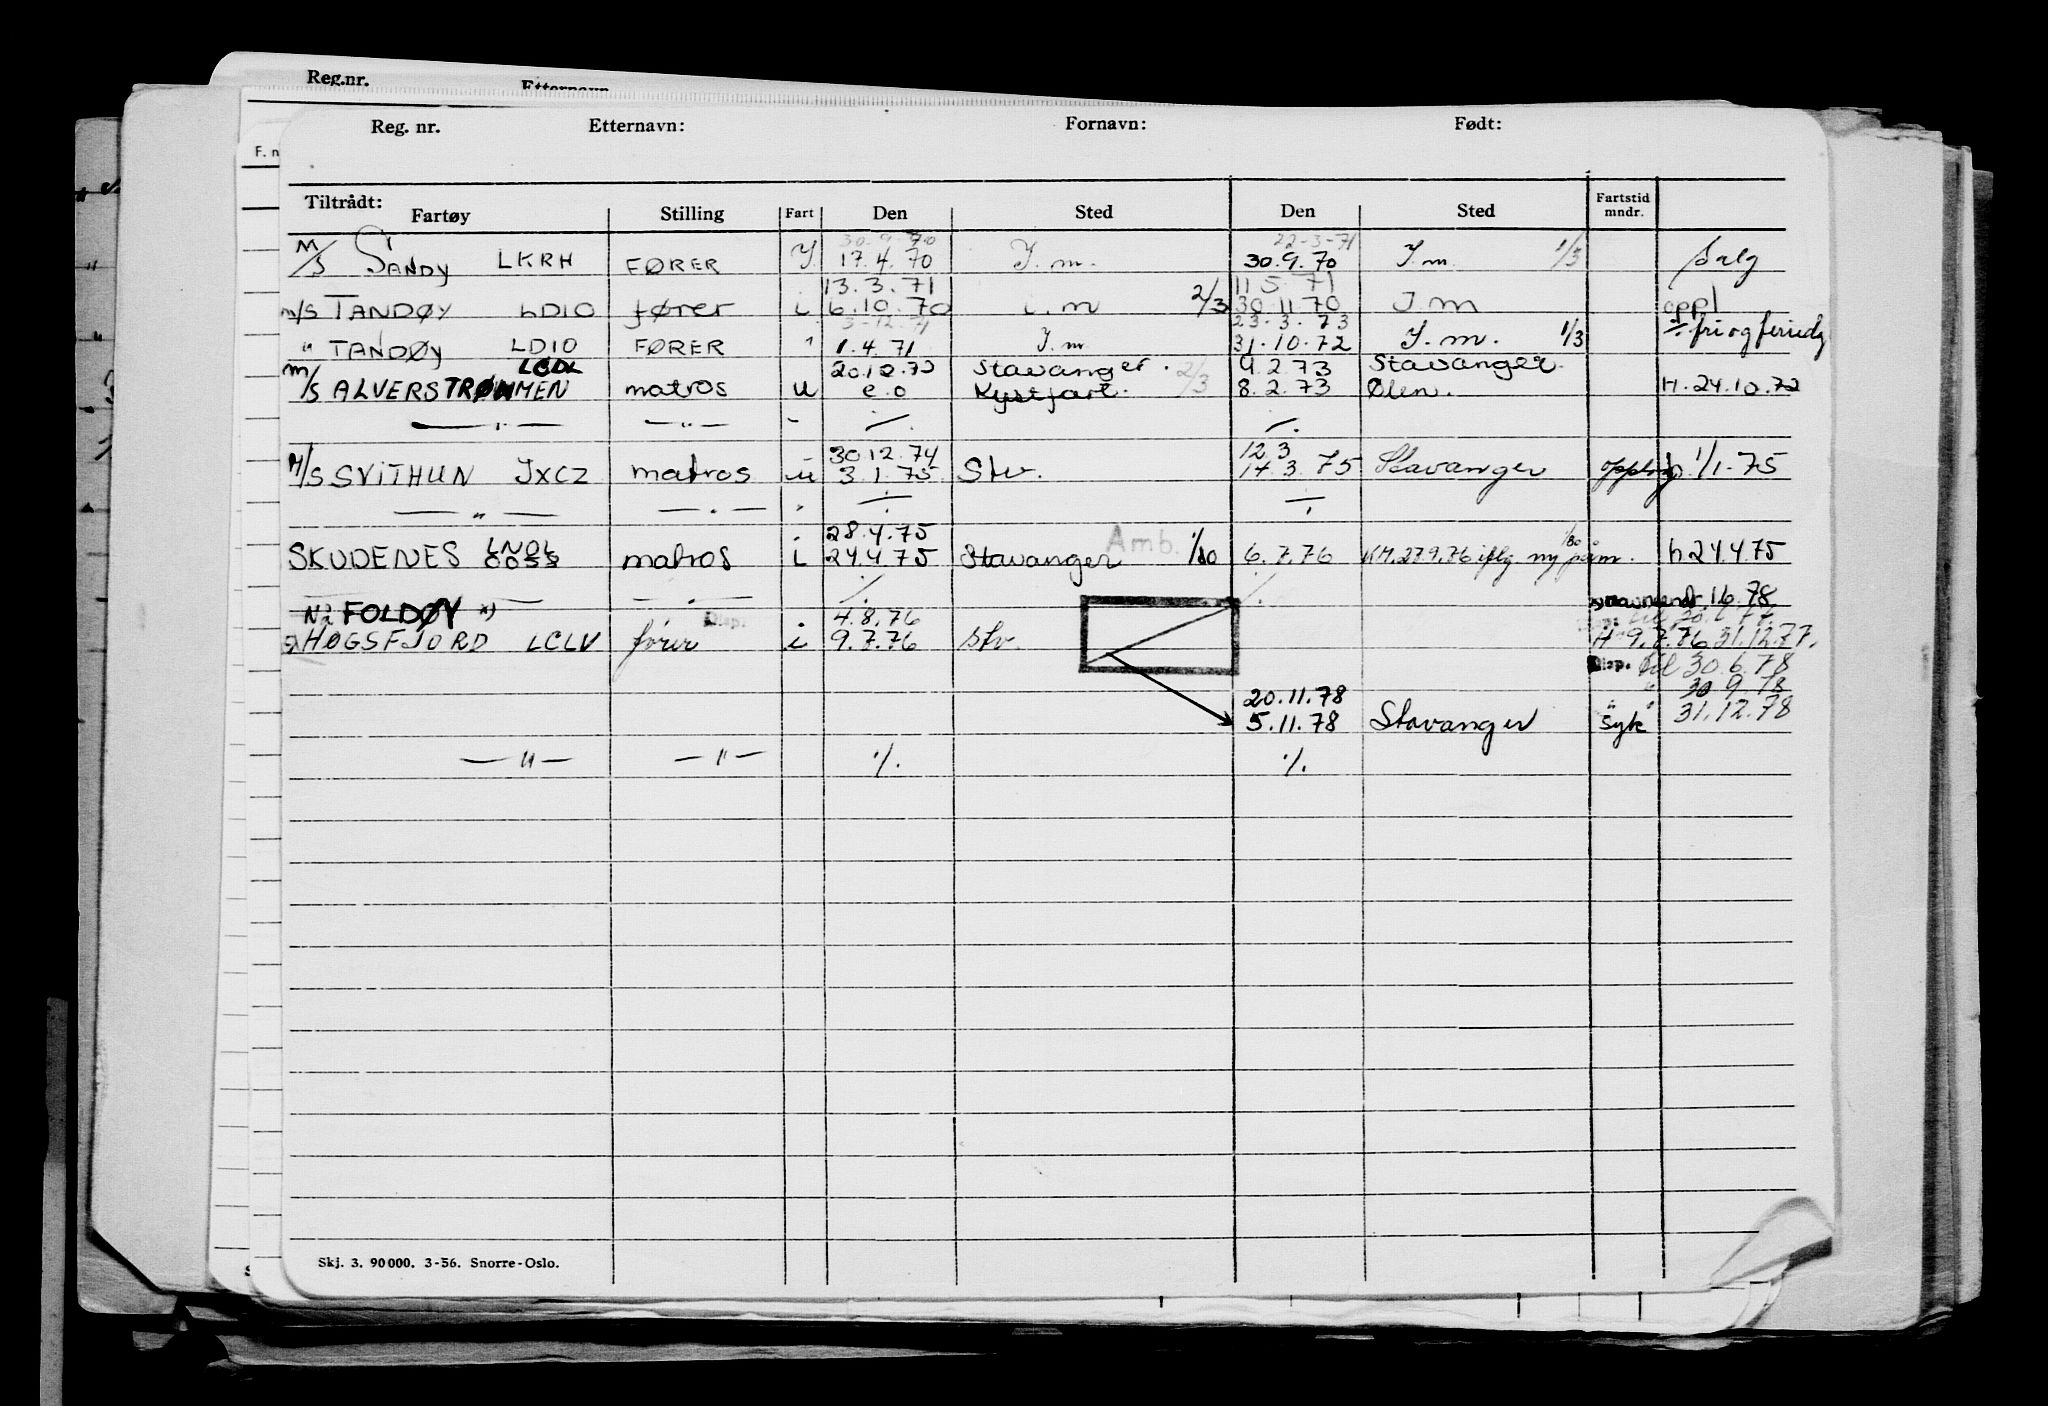 Reg.nr. Etternavn
Reg. nr. Etternavn: Fornavn: Født:
F. n
Tiltrådt: Fartøy Stilling Fart Den Sted Den Sted Fartstid mndr.
30.9.70 22-3-71
M/S SANDY LKRH FØRER I. 17.4.70 I.m. 30.9.70 I.m. 1/3 Salg
13.3.71 11 5 71
m/s TANDØY LDIO fører i 6.10.70 i.m 2/3 30 11 70 I m oppl
3-12.71 23.3.73
" TANDØY LDIO FØRER " 1.4.71 I.m. 31.10.72 I.m. 1/3 fri og feriedg
LCDL 20.12.72 Stavanger. 9.2 73 Stavanger.
m/s ALVERSTRØMMEN matros u e.o Kystfart. 2/3 8.2.73 Ølen. H.24.10.72
— " — — " — - ./. ./.
30.12.74 12.3
M/S SVITHUN JXCZ matros u 3.1.75 Stv. 14.3.75 Stavanger opplag h. 1/1-75
— " — — " — ./. ./.
LNOL 28.4.75 Amb. 1/80
SKUDENES matros i 24.4.75 Stavanger 1/80 6.7.76 K.M.27.9.76 iflg. ny perm. h 24.4.75
— — — . — ./. ./.
Nå FOLDØY x) Disp. 4.8.76 x) navneendr. 1.6.78
HØGSFJORD LCLV fører i 9.7.76 Stv. H 9.7.76 31.12.77.
Disp. til 30.6.78
20.11.78 " 30 9.78
5.11.78 Stavanger Syk " " 31.12.78
— " — — " — ./. ./.
Skj. 3. 90 000. 3-56. Snorre-Oslo.